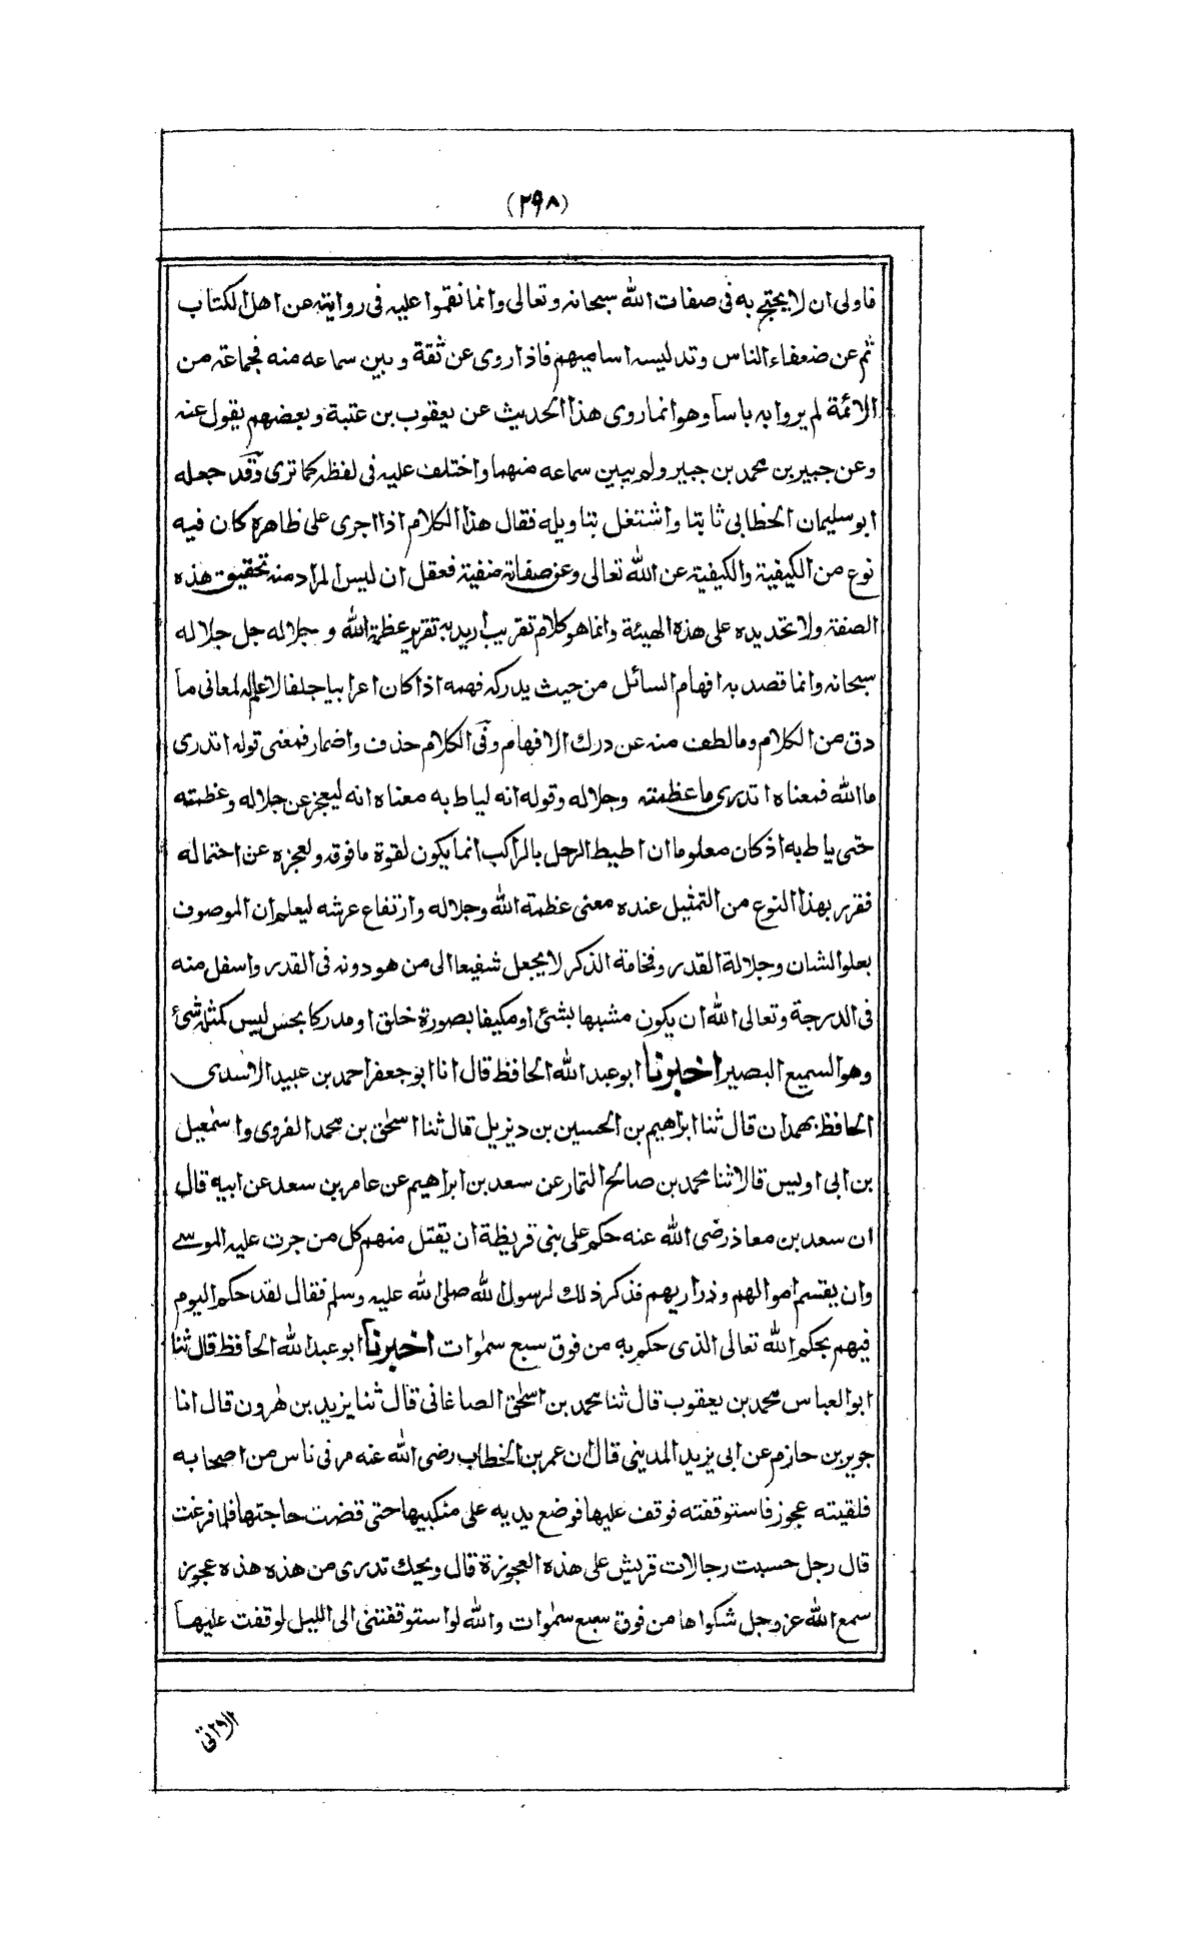 (٢٩٨)
فاولى ان لا يحتج به فى صفات الله سبحانه وتعالى وانما نقموا عليه فى روايته عن اهل الكتاب
ثم عن ضعفاء الناس وتدليسه اساميهم فاذا روى عن ثقة وبين سماعه منه فجماعة من
الائمة لم يروا به باسا وهو انما روى هذا الحديث عن يعقوب بن عتبة وبعضهم يقول عنه
وعن جبير بن محمد بن جبير ولم يبين سماعه منهما واختلف عليه فى لفظه كما ترى وقد جعله
ابو سليمان الخطابى ثابتا واشتغل بتاويله فقال هذا الكلام اذا اجرى على ظاهره كان فيه
نوع من الكيفية والكيفية عن الله تعالى وعن صفاته منفية فعقل ان ليس المراد منه تحقيق هذه
الصفة ولا تحديده على هذه الهيئة وانما هو كلام تقريب اريد به تقرير عظمة الله وجلاله جل جلاله
سبحانه وانما قصد به افهام السائل من حيث يدركه فهمه اذا كان اعرابيا جلفا لا علم له لمعانى ما
دق من الكلام وما لطف منه عن درك الافهام وفى الكلام حذف واضمار فمعنى قوله اتدرى
ما الله فمعناه اتدرى ما عظمته وجلاله وقوله انه لياط به معناه انه ليعجز عن جلاله وعظمته
حتى ياط به اذ كان معلوما ان اطيط الرحل بالراكب انما يكون لقوة ما فوقه ولعجزه عن احتماله
فقرر بهذا النوع من التمثيل عنده معنى عظمة الله وجلاله وارتفاع عرشه ليعلم ان الموصوف
بعلو الشان وجلالة القدر وفخامة الذكر لا يجعل شفيعا الى من هو دونه فى القدر واسفل منه
فى الدرجة وتعالى الله ان يكون مشبها بشئ او مكيفا بصورة خلق او مدركا بحس ليس كمثله شئ
وهو السميع البصير اخبرنا ابو عبد الله الحافظ قال انا ابو جعفر احمد بن عبيد الاسدى
الحافظ بهمدان قال ثنا ابراهيم بن الحسين بن ديزيل قال ثنا اسحٰق بن محمد الفروى واسمٰعيل
بن ابى اويس قالا ثنا محمد بن صالح التمار عن سعد بن ابراهيم عن عامر بن سعد عن ابيه قال
ان سعد بن معاذ رضى الله عنه حكم على بنى قريظة ان يقتل منهم كل من جرت عليه الموسے
وان يقسم اموالهم وذراريهم فذكر ذلك لرسول الله صلى الله عليه وسلم فقال لقد حكم اليوم
فيهم بحكم الله تعالى الذى حكم به من فوق سبع سمٰوات اخبرنا ابو عبد الله الحافظ قال ثنا
ابو العباس محمد بن يعقوب قال ثنا محمد بن اسحٰق الصاغانى قال ثنا يزيد بن هٰرون قال انا
جرير بن حازم عن ابى يزيد المدينى قال ان عمر بن الخطاب رضى الله عنه مر فى ناس من اصحابه
فلقيته عجوز فاستوقفته فوقف عليها فوضع يديه على منكبيها حتى قضت حاجتها فلما فرغت
قال رجل حبست رجالات قريش على هذه العجوزة قال ويحك تدرى من هذه هذه عجوز
سمع الله عز وجل شكواها من فوق سبع سمٰوات والله لو استوقفتنى الى الليل لوقفت عليها